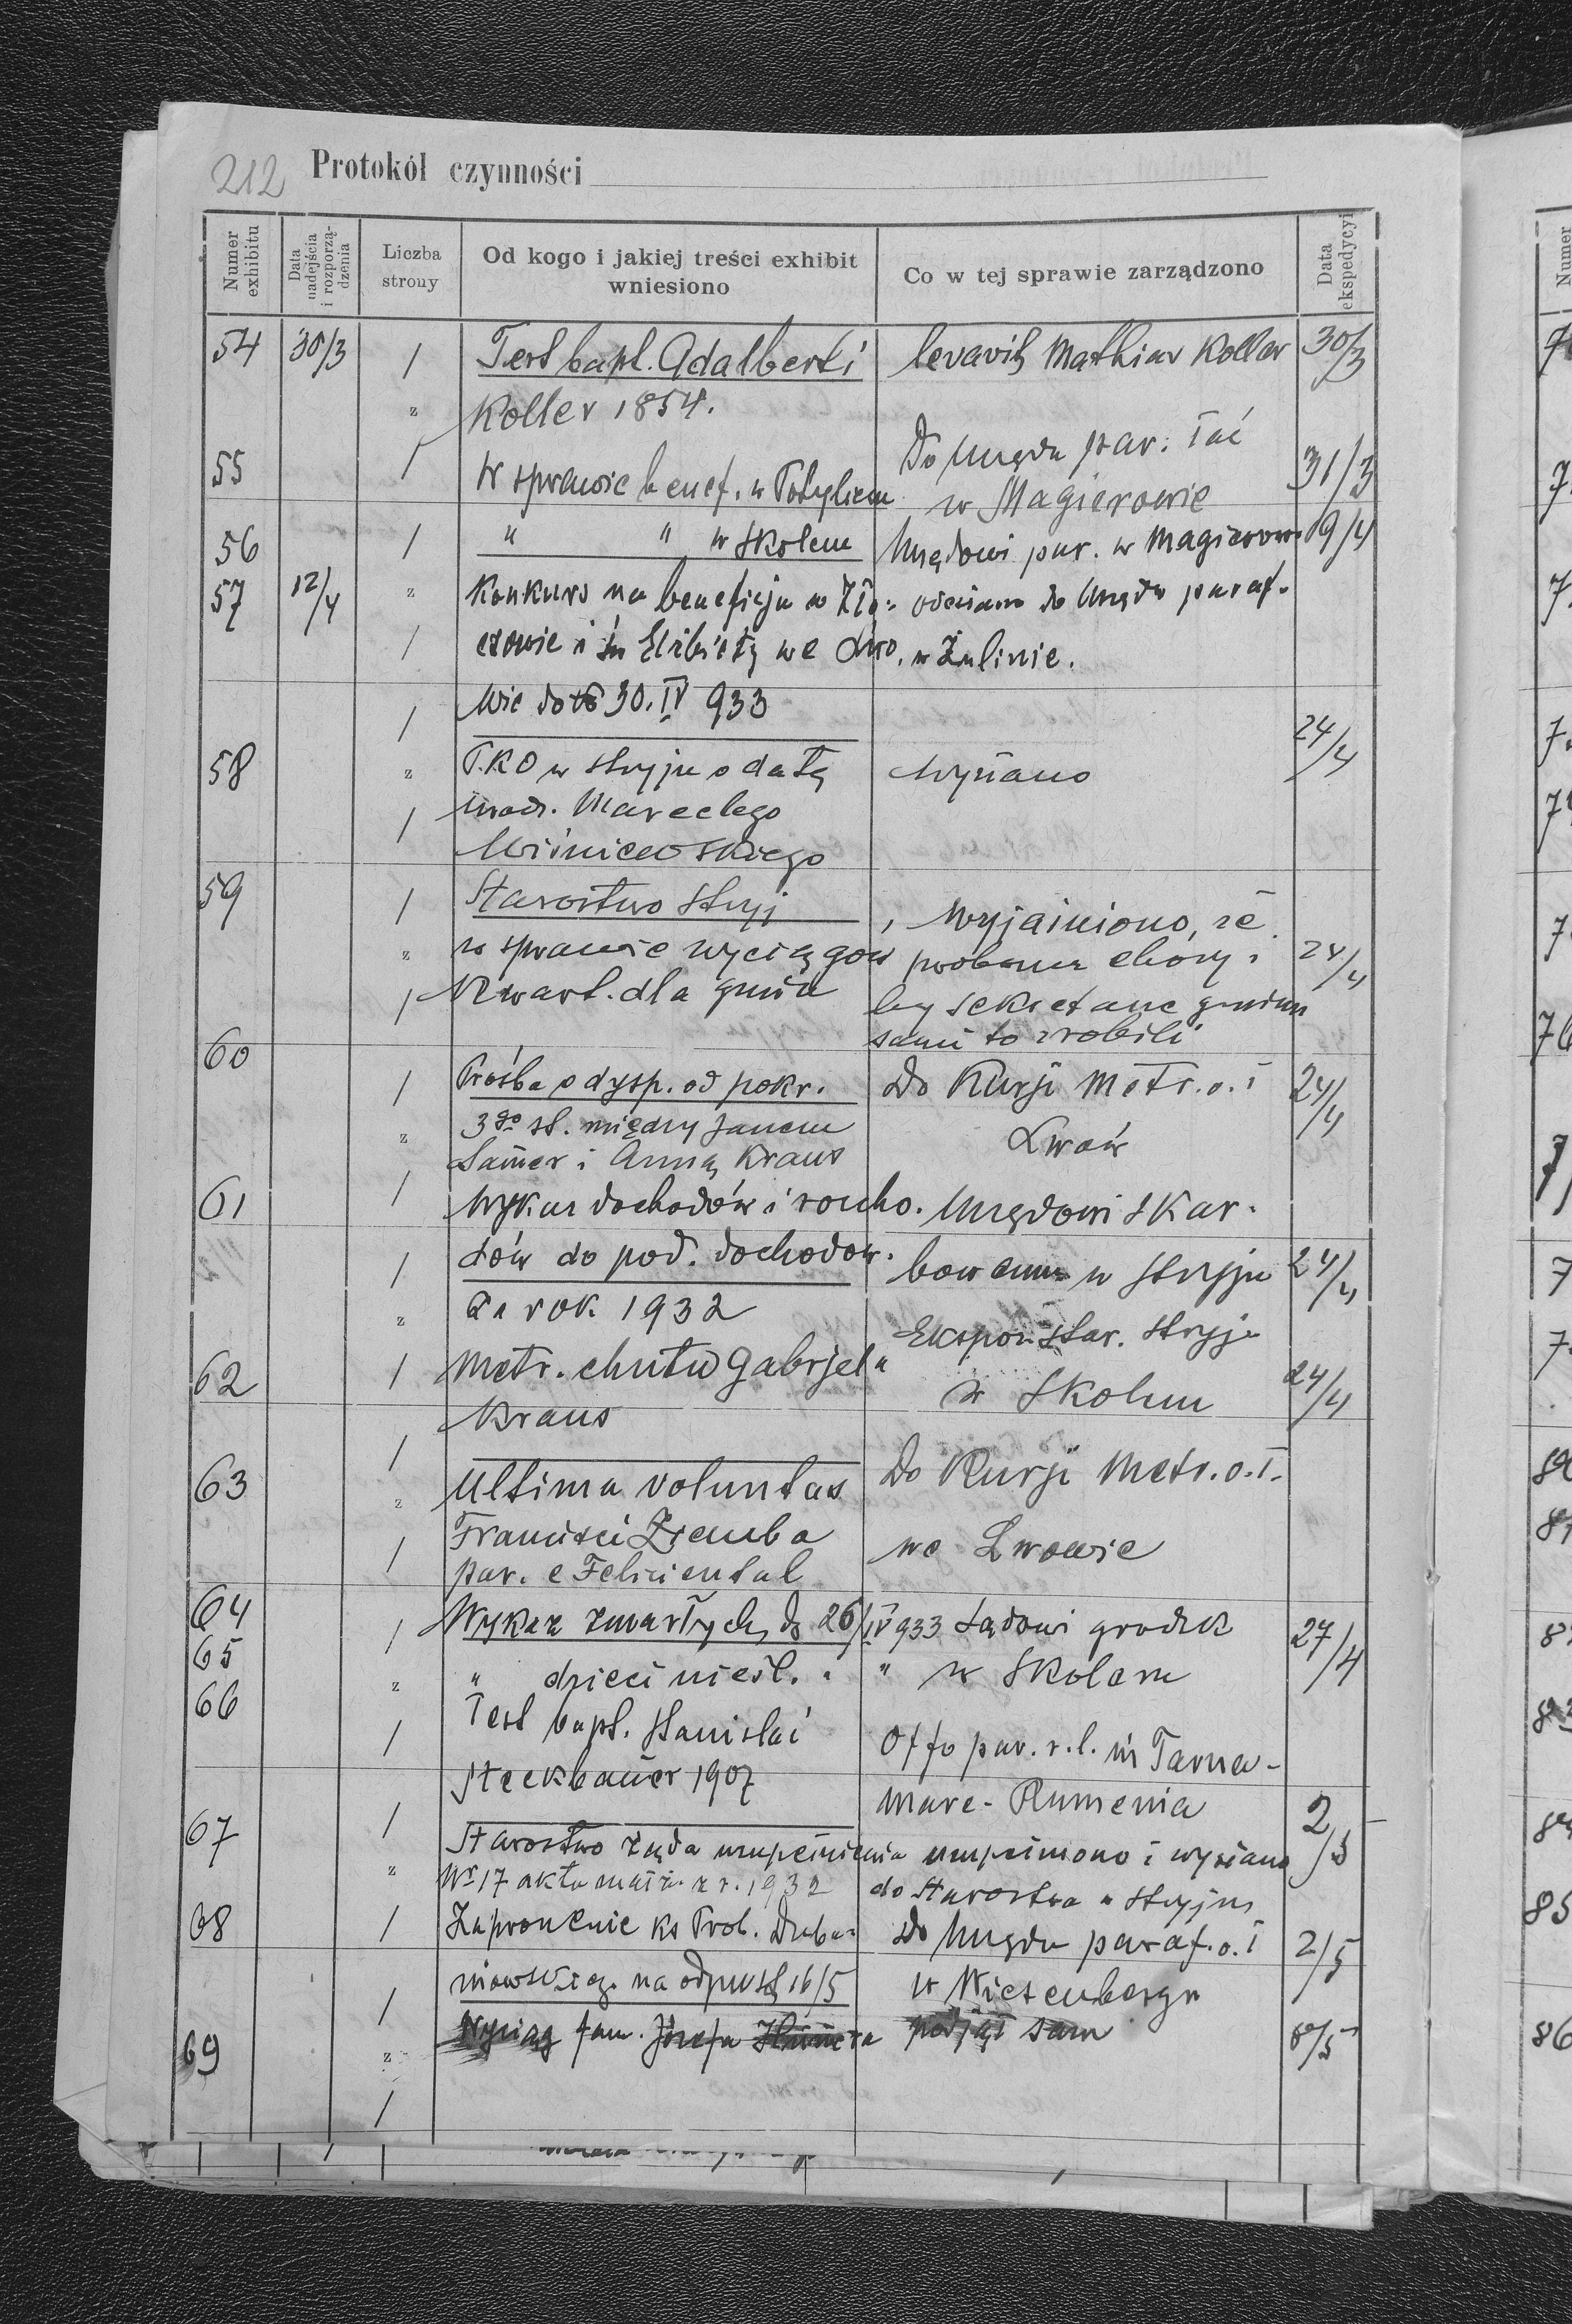 212 Protokół czynności
Numer exhibitu
Data nadejścia i rozporzą-dzenia
Liczba strony
Od kogo i jakiej treści exhibit wniesiono
Co w tej sprawie zarządzono
Data ekspedycyi
54 30/3 1 Test bapt. Adalberti levavit Mathias Koller 30/3
z Koller 1854.
Do Urzędu par. łać
55 1 W sprawie benef. w Potyliczu 31/3
w Magierowie
56 1 " " w Skolem Urzędowi par. w Magierow 19/4
57 12/4 z Konkurs na beneficja w Zło- odesłano do Urzędu paraf.
1 czowie i św Elżbiety we Lwo. w Żulinie.
1 wie do 30. IV 933
24/4
58 z P.K.O w Stryju o datę wysłano
1 urodz. Marcelego
Wiśniewskiego
59 1 Starostwo Stryj , Wyjaśniono, że
z w sprawie wyciągów proboszcz chory i 24/4
1 Kwart. dla gmin by sekretarze gminni
sami to zrobili
60 1 Prośba o dysp. od pokr. Do Kurji Metr. o. ł 24/4
z 3go st. między Janem Lwów
Lamer i Anną Kraus
61 1 Wykaz dochodów i rozcho. Urzędowi Skar-
1 dów do pod. dochodow. bowemu w Stryju 24/4
z za rok 1932
Ekspoz. Star. Stryj
62 1 Metr. chrztu Gabrjela w Skolem 24/4
Kraus
63 1 Do Kurji Metr. o. ł.
z Ultima voluntas
Francisci Ziemba we Lwowie
1 par. e Felicienthal
64 1 Wykaz zmarłych do 26/IV 933 Sądowi grodzk 27/4
65 z " dzieci nieśl. " " w Skolem
66 Test bapt. Stanislai
1 Offo par. r. l. in Tarna-
Steckbauer 1907
67 1 Mare - Rumenia 2/5
Starostwo żąda uzupełnienia uzupełniono i wysłano
z Nr 17 aktu małż. z r. 1932 do Starostwa w Stryju
68 1 Zaproszenie ks Prob. Duba- Do Urzędu paraf. o. ł 2/5
1 niowskiego na odpust 16/5 w Wiesenbergu
69 z Wyciąg fam. Józefa podjął sam 8/5
1
Numer
85
86